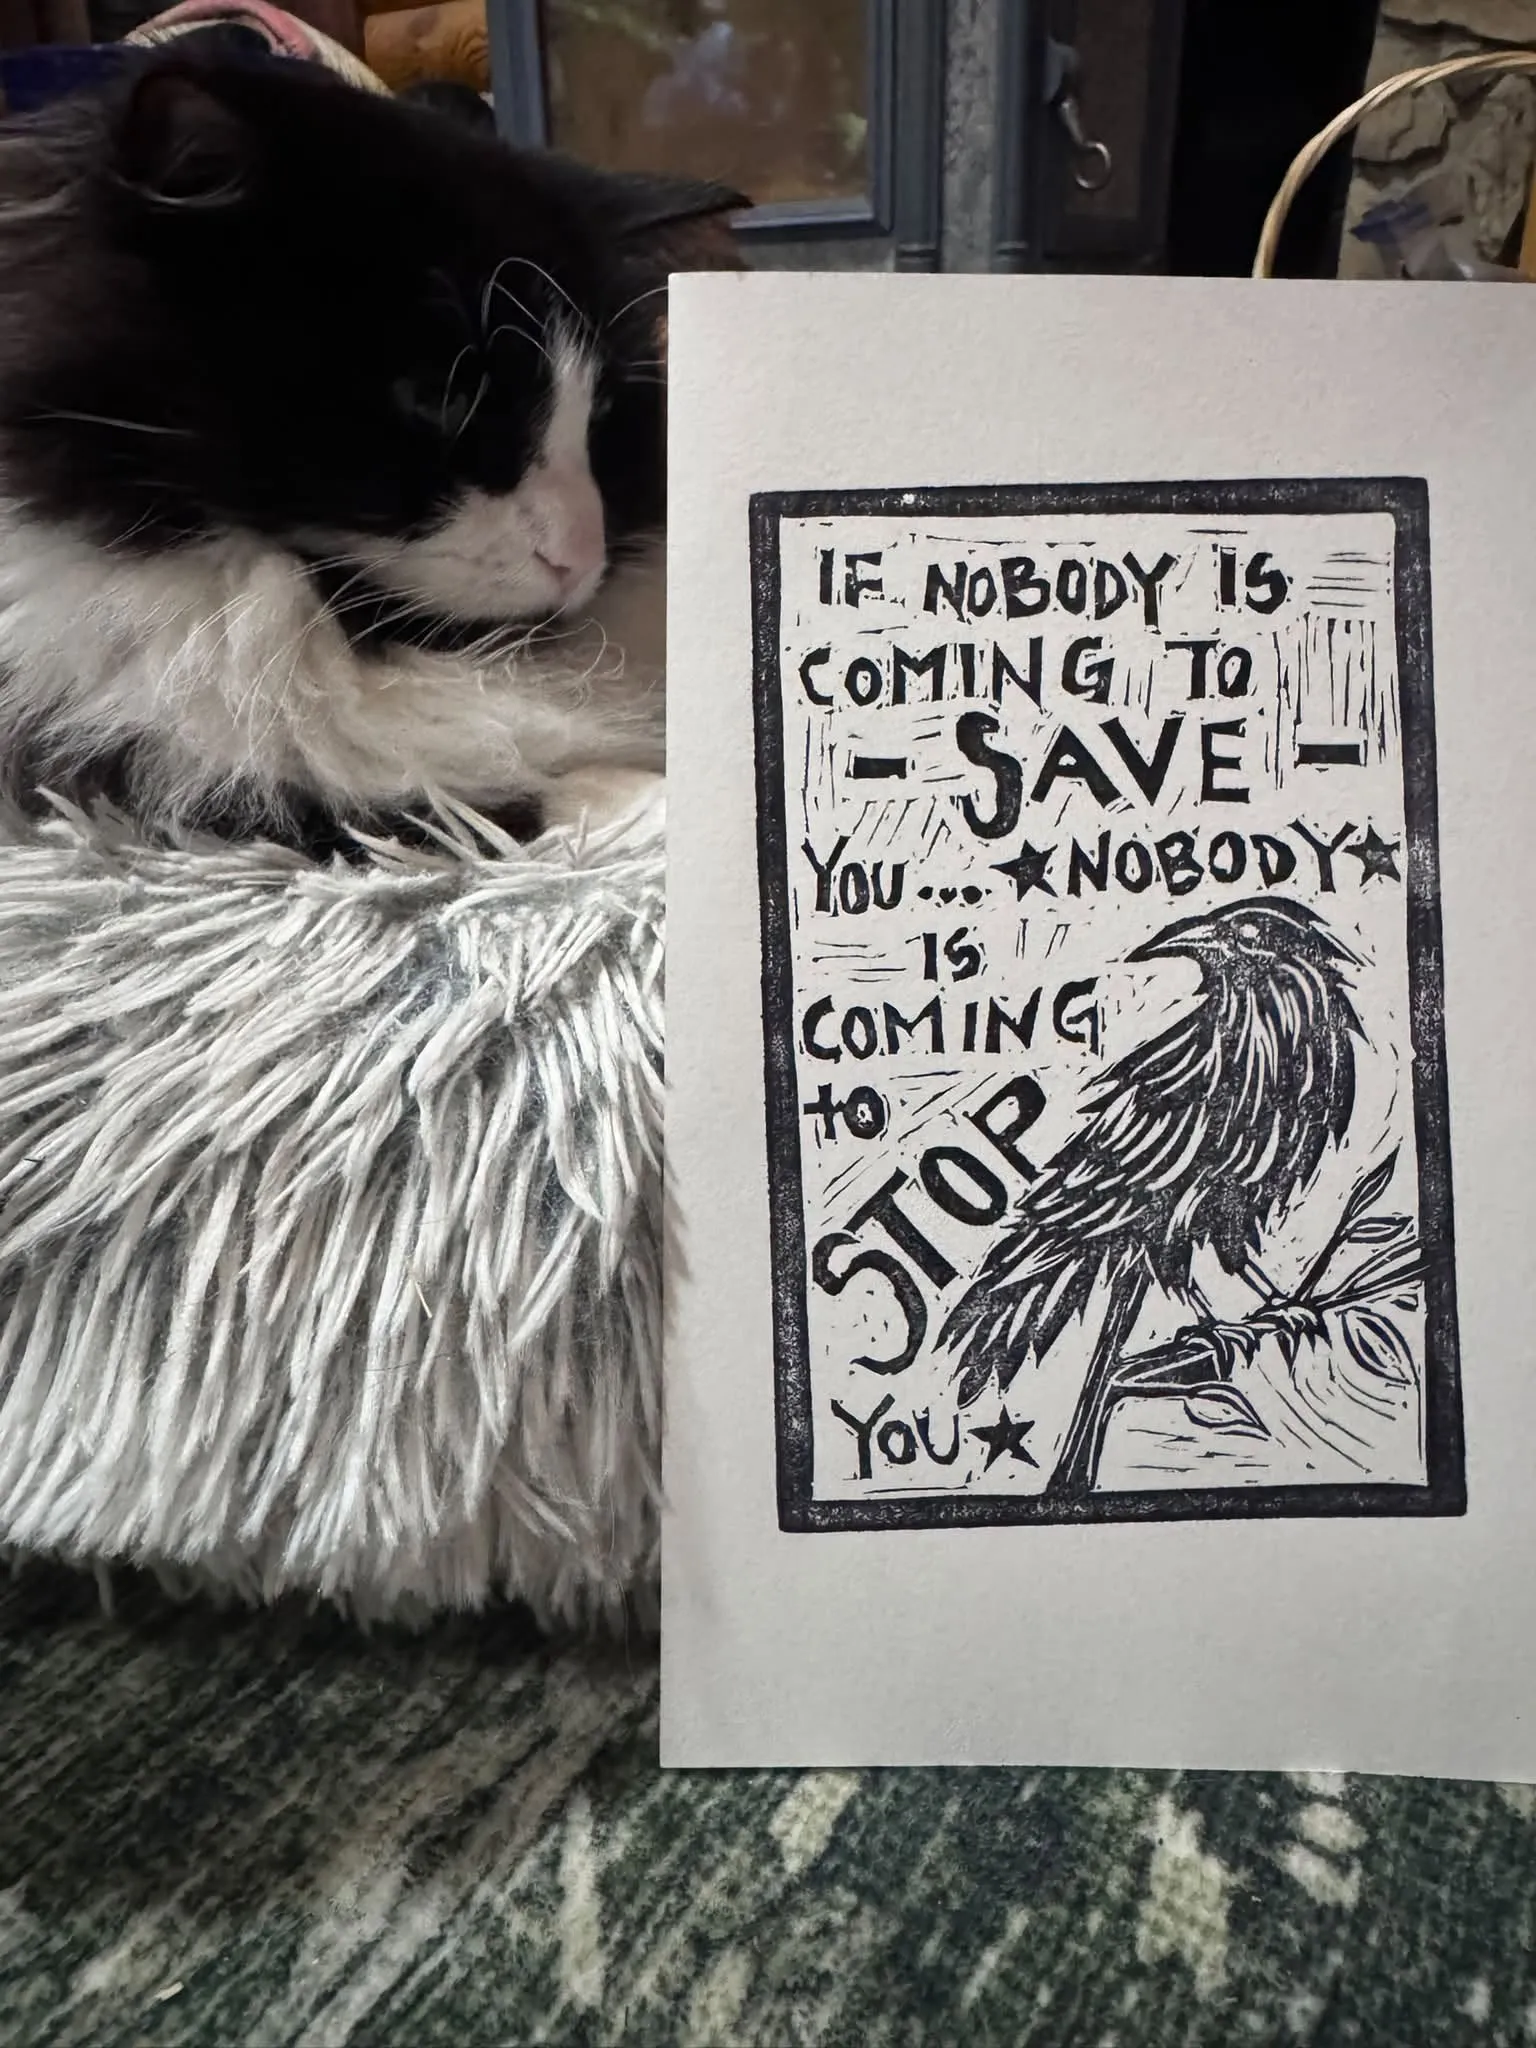 IF NOBODY IS
COMING TO
- SAVE -
YOU... ★NOBODY★
IS
COMING
to
STOP
YOU★